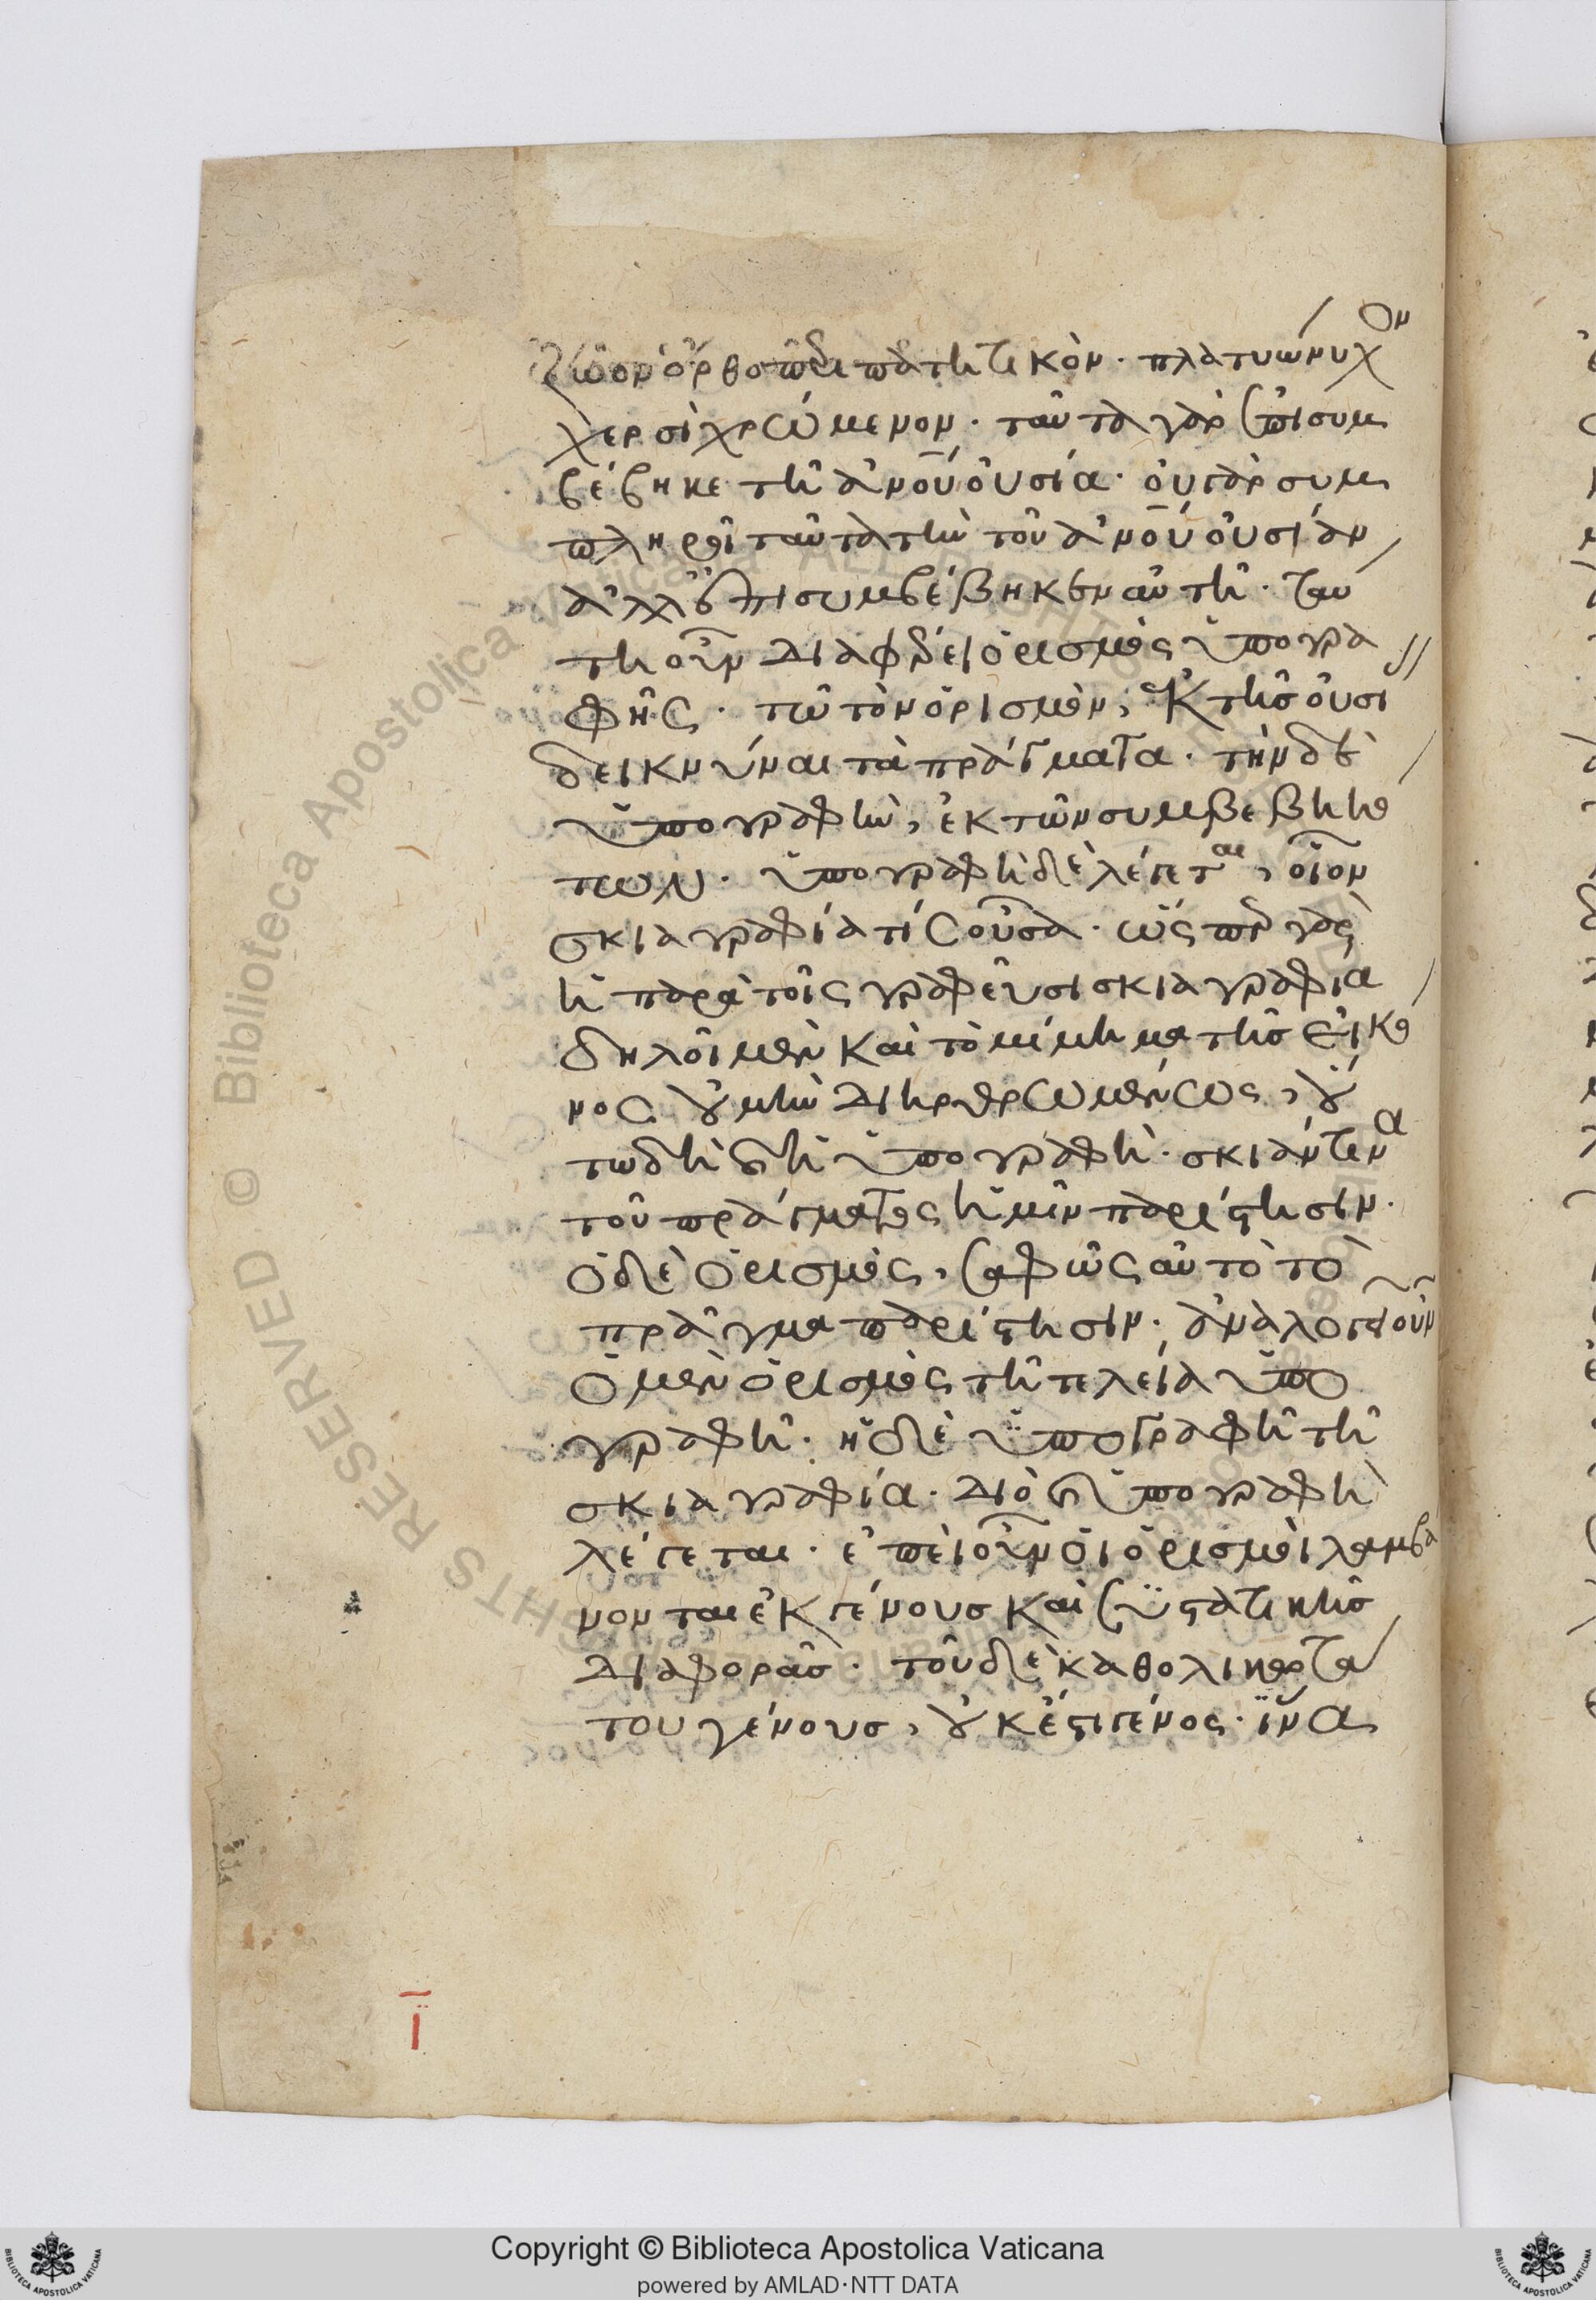 ζῶον ὀρθοπεριπατητικὸν· πλατυώνυχον
χερσὶ χρώμενον· ταῦτα γὰρ ἐπισυμ
βέβηκε τῆ ἀνου οὐσία· οὐ γὰρ συμ
πληροῖ ταῦτα τὴν τοῦ ἀνου οὐσίαν
ἀλλ' ἐπισυμβέβηκεν αὐτῆ· ταύ
τη οὖν διαφέρει ὁρισμὸς ὑπογρα
φῆς· τῶ τὸν ὁρισμὸν, ἐκ τῆς οὐσι
δεικνύναι τὰ πράγματα· τὴν δὲ
ὑπογραφὴν, ἐκ τῶν συμβεβηκό
των· ὑπογραφὴ δὲ λέγεται, οἷον
σκιαγραφία τίς οὖσα· ὥς περ γὰρ
ἡ παρὰ τοῖς γραφεῦσι σκιαγραφία
δηλοῖ μὲν καὶ τὸ μίμημα τῆς εἰκό
νος οὐ μὴν διηρθρωμένως, οὕ
τω δὴ καὶ ἡ ὑπογραφὴ· σκιάν τινα
τοῦ πράγματος ἡμῖν παρίστησιν·
ὁ δὲ ὁρισμὸς, σαφῶς αὐτὸ τὸ
πρᾶγμα παρίστησιν· ἀναλογεῖ οὖν
ὁ μὲν ὁρισμὸς τῆ τελεία ὑπο
γραφῆ· ἡ δὲ ὑπογραφῆ τῆ
σκιαγραφία· διὸ καὶ ὑπογραφὴ
λέγεται· ἐπεὶ οὖν οἱ ὁρισμοὶ λαμβά
νονται ἐκ γένους καὶ συστατικῆς
διαφορᾶς· τοῦ δὲ καθολικωτά
του γένους, οὐκ ἔστι γένος· ἵνα
ῑ
Copyright © Biblioteca Apostolica Vaticana
powered by AMLAD·NTT DATA
Biblioteca Apostolica Vaticana ALL RIGHTS RESERVED ©